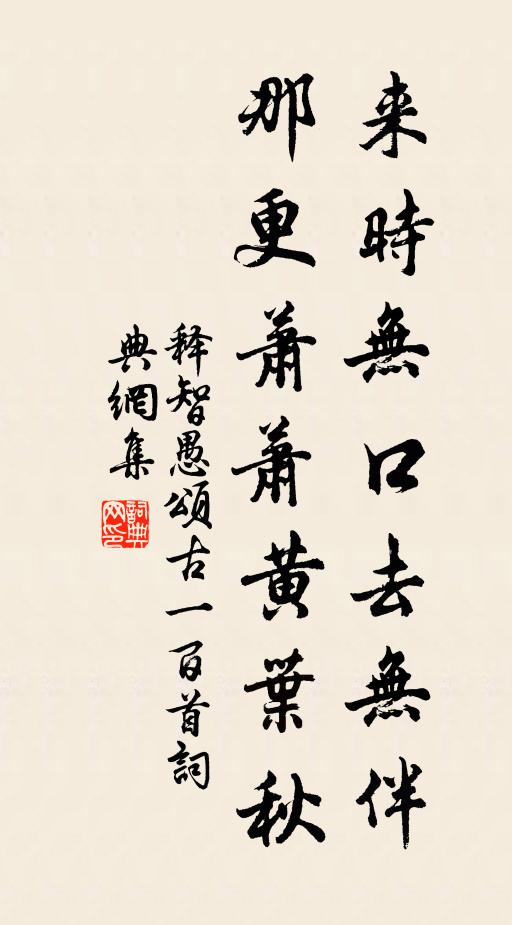 来時無口去無伴
那更蕭蕭黃葉秋
释智愚頌古一百首詞
典網集
詞典网印